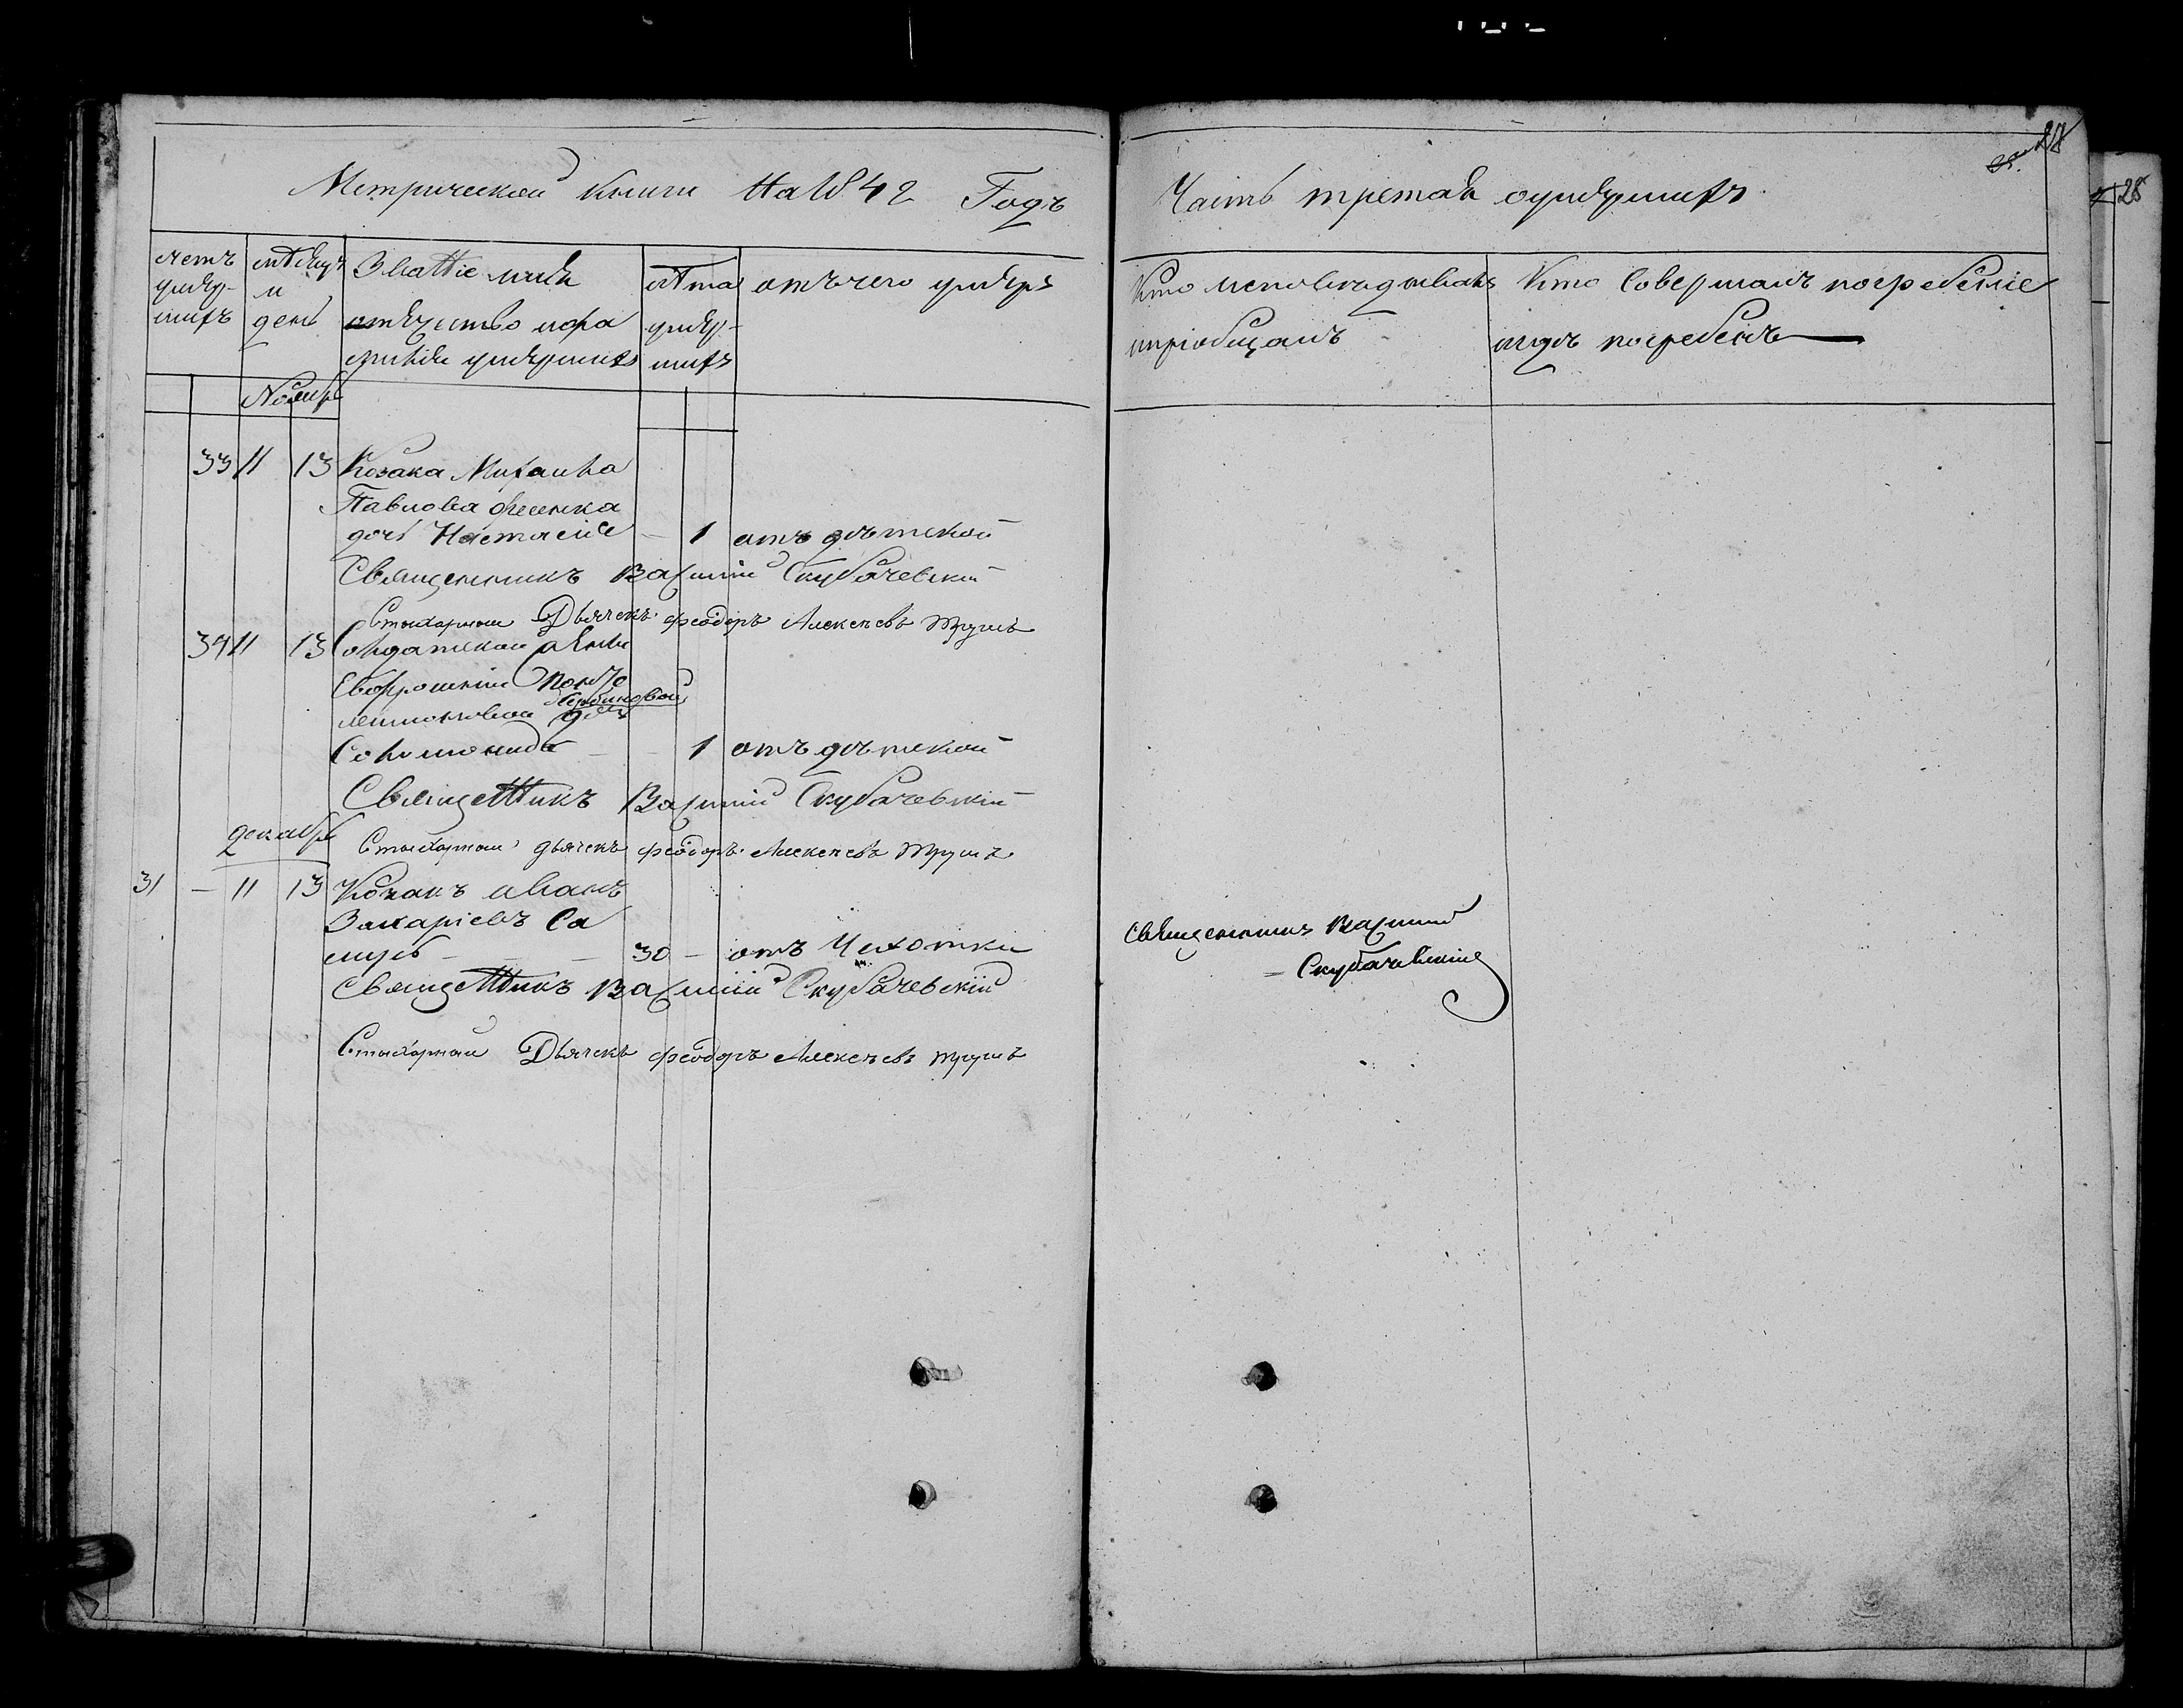 Метрической книги на 1842 Годъ
Часть третая оумершихъ
28
28
счетъ умер-шихъ
мѣсяцъ и день
Званіе имя отечество и фамилія умершихъ
лѣта умер-шихъ
отъ чего умеръ
Кто исповѣдывалъ и пріобщалъ
Кто Совершалъ погребеніе и гдѣ погребенъ
Ноябрь
33 11 13 Козака Михаила
Павлова
дочь Настасия — 1 отъ дѣтской
Священникъ Василій Скубачевскій
Стихарный Дьячекъ Феодоръ Алексѣевъ Трушъ
34 11 13 Солдатской жены
Евфросиніи
дочь
Соломонида — — 1 отъ дѣтской
Священникъ Василій Скубачевскій
декабрь
Стихарный дьячекъ Феодоръ Алексѣевъ Трушъ
31 — 11 13 Козакъ иванъ
Захаріевъ Са
мусь — — 30 — отъ Чахотки
священникъ Василій
Скубачевскій
Священникъ Василій Скубачевскій
Стихарный Дьячекъ Феодоръ Алексѣевъ Трушъ